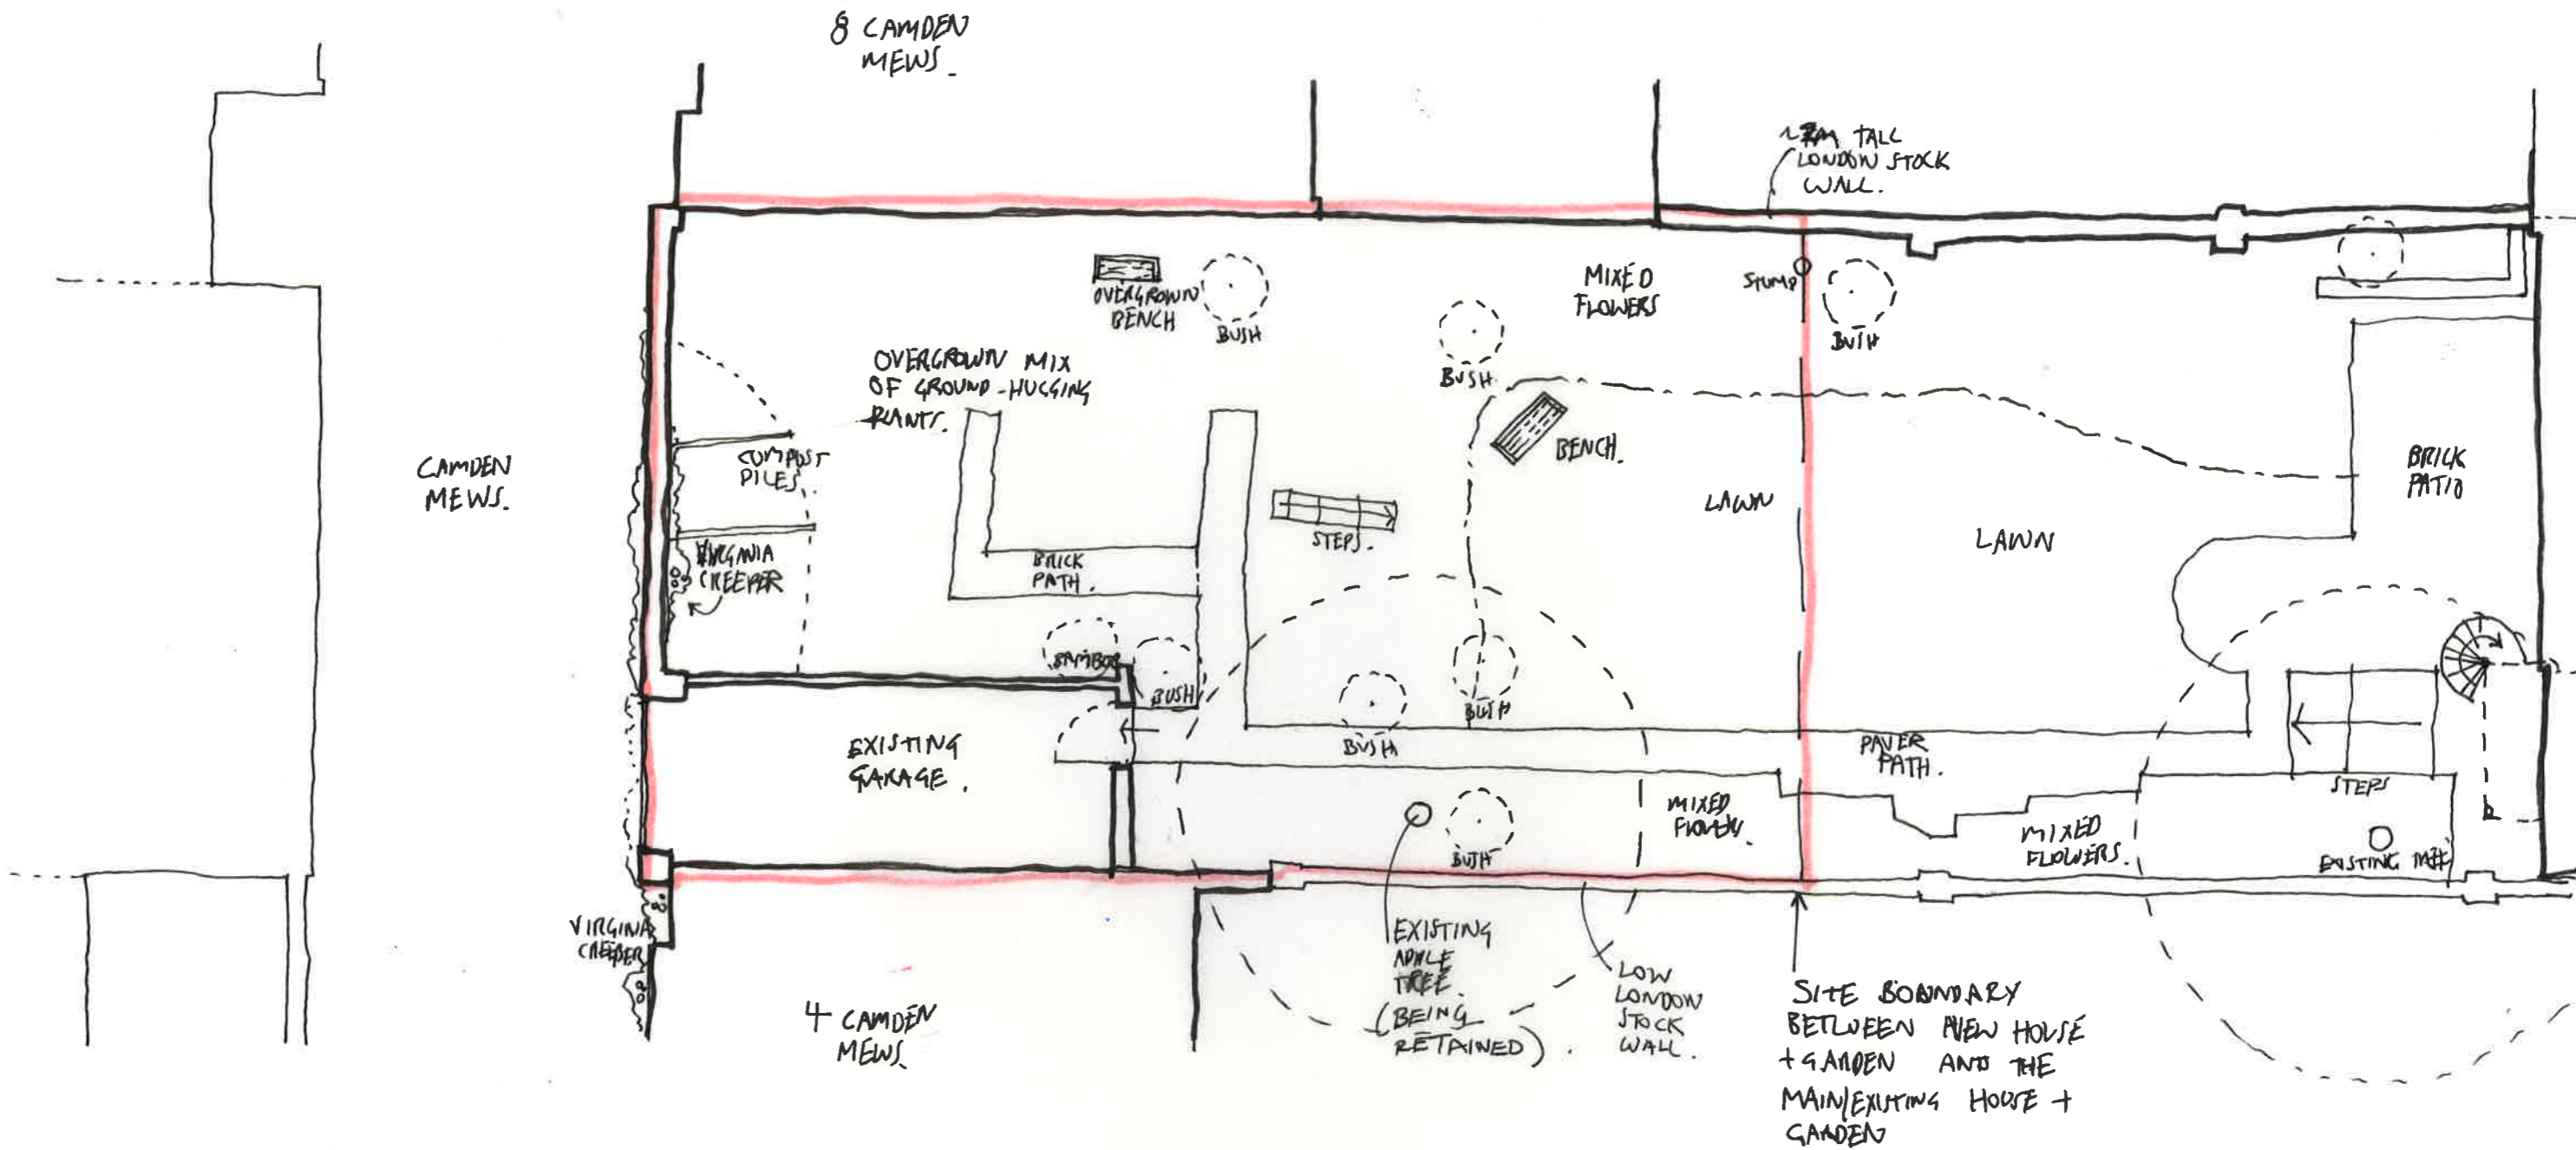 8 CAMDEN
MEWS.
TALL
LONDON STOCK
WALL.
OVERGROWN
BENCH
BUSH
MIXED
FLOWERS
STUMP
BUSH
BUSH
OVERGROWN MIX
OF GROUND-HUGGING
PLANTS.
CAMDEN
MEWS.
COMPOST
PILES
BENCH.
BRICK
PATIO
LAWN
LAWN
STEPS.
VIRGINIA
CREEPER
BRICK
PATH.
BAMBOO
BUSH
BUSH
BUSH
EXISTING
GARAGE.
PAVER
PATH.
STEPS
MIXED
FLOWERS.
MIXED
FLOWERS.
BUSH
EXISTING TREE
VIRGINIA
CREEPER
EXISTING
APPLE
TREE.
(BEING
RETAINED).
LOW
LONDON
STOCK
WALL.
4 CAMDEN
MEWS.
SITE BOUNDARY
BETWEEN NEW HOUSE
+ GARDEN AND THE
MAIN/EXISTING HOUSE +
GARDEN